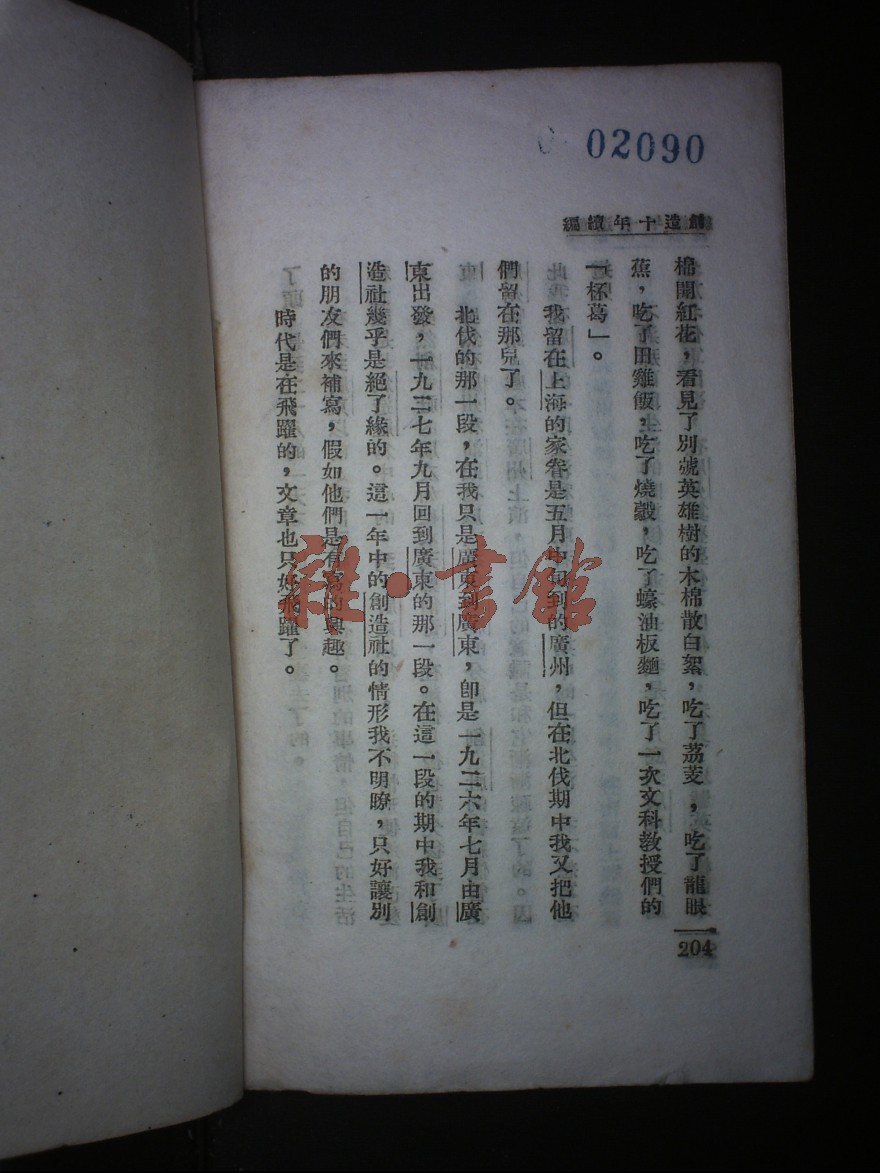 02090
創造十年續編
棉開紅花，看見了別號英雄樹的木棉散白絮，吃了荔支，吃了龍眼
蕉，吃了田雞飯，吃了燒穀，吃了蠔油板麵，吃了一次文科教授們的
「杯葛」。
我留在上海的家眷是五月中旬到的廣州，但在北伐期中我又把他
們留在那兒了。
北伐的那一段，在我只是廣東到廣東，卽是一九二六年七月由廣
東出發，一九二七年九月回到廣東的那一段。在這一段的期中我和創
造社幾乎是絕了緣的。這一年中的創造社的情形我不明瞭，只好讓別
的朋友們來補寫，假如他們是有寫的興趣。
時代是在飛躍的，文章也只好飛躍了。
204
雜·書館